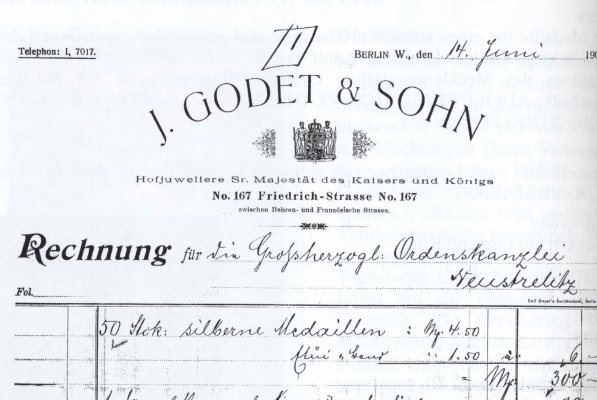 Telephon: 1, 7017.
BERLIN W., den 14. Juni 190
J. GODET & SOHN
Hofjuweliere Sr. Majestät des Kaisers und Königs
No. 167 Friedrich-Strasse No. 167
zwischen Behren- und Französische Strasse.
Rechnung für die Großherzogl: Ordenskanzlei
Neustrelitz
Fol.
50 Stck: silberne Medaillen : Mp 4.50
Etui u Band " 1.50 à 6.-
Mp. 300.-